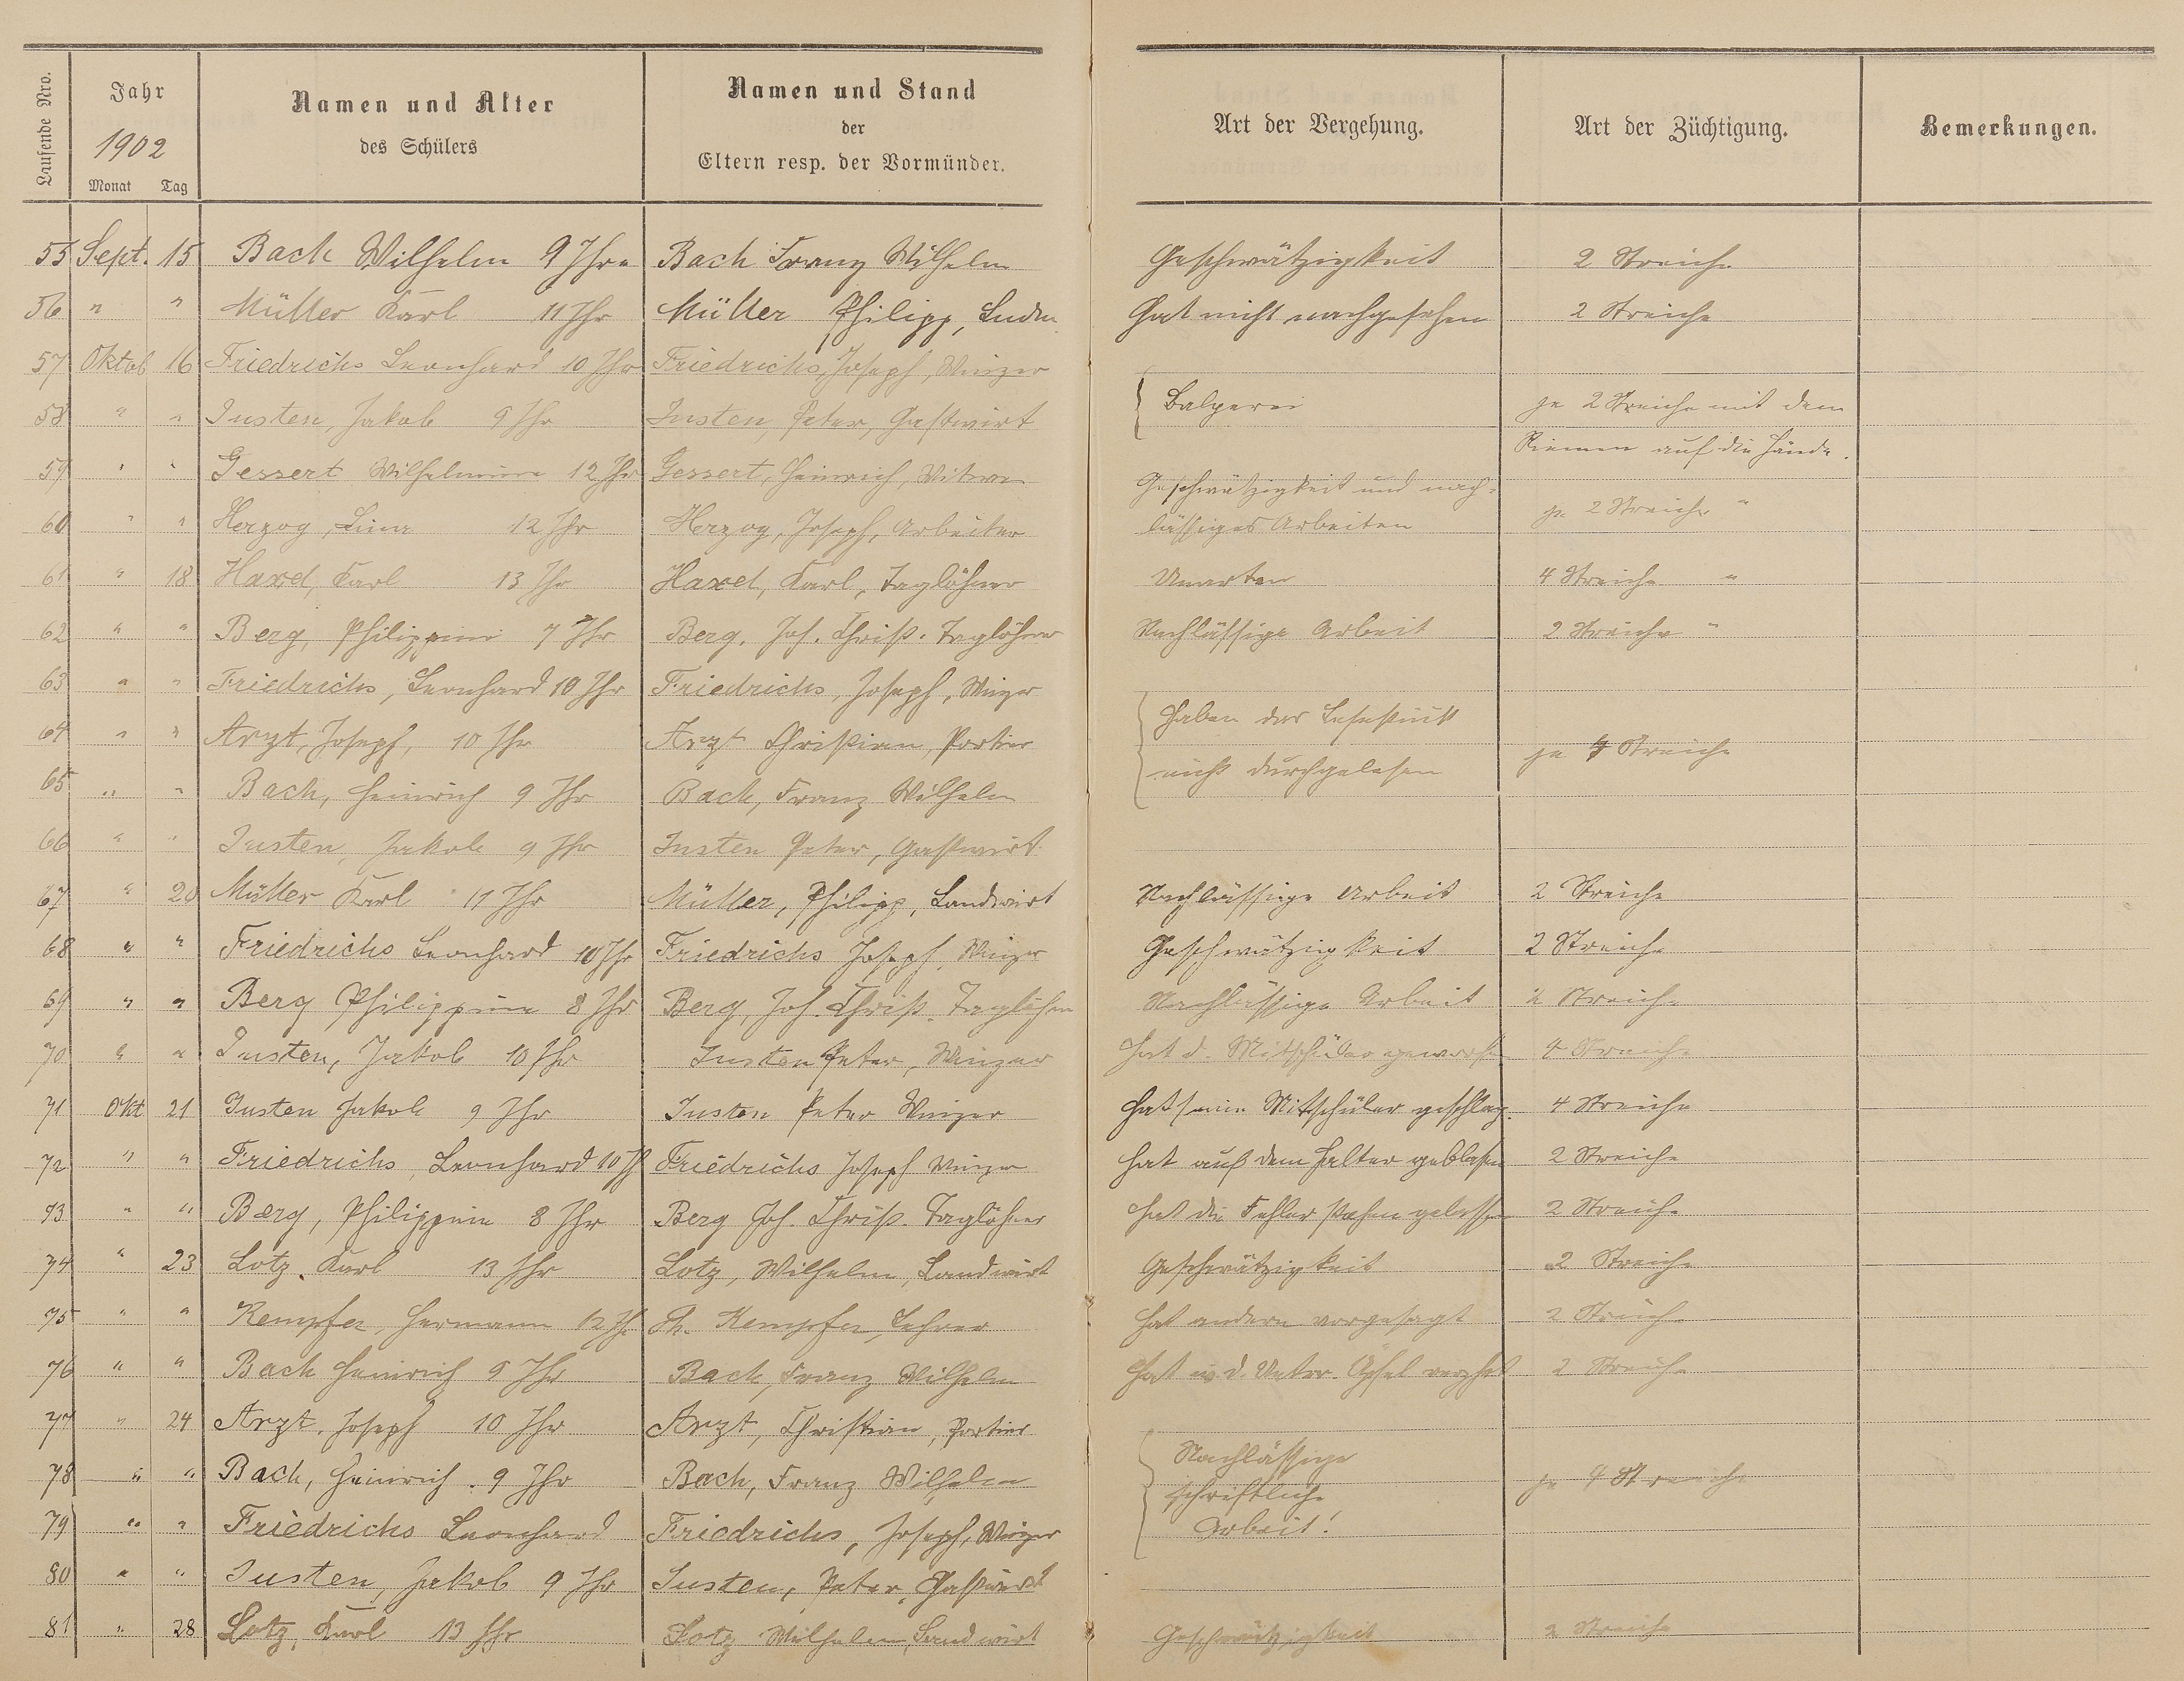 Laufende Nro.
Jahr
1902
Monat Tag
Namen und Alter
des Schülers
Namen und Stand
der
Eltern resp. der Vormünder.
Art der Vergehung.
Art der Züchtigung.
Bemerkungen.
55 Sept. 15 Bach Wilhelm 9 Jhre Bach Franz Wilhelm Geschwätzigkeit 2 Streiche
56 " " Müller Karl 11 Jhr Müller Philipp, Hat nicht nachgesehen 2 Streiche
57 Oktob 16 Friedrichs Leonhard 10 Jhr Friedrichs, Joseph, Winzer
58 " " Justen, Jakob 9 Jhr Justen, Peter, Gastwirt Balgerei je 2 Streiche mit dem
Riemen auf die Hände.
59 " " Gessert Wilhelmine 12 Jhr Gessert, Heinrich, Witwe Geschwätzigkeit und nach-
60 " " Herzog, Lina 12 Jhr Herzog, Joseph, Arbeiter lässiges Arbeiten je 2 Streiche "
61 " 18 Haxel, Karl 13 Jhr Haxel, Karl, Taglöhner Unarten 4 Streiche "
62 " " Berg, Philippine 7 Jhr Berg, Joh. Christ. Taglöhner Nachlässige Arbeit 2 Streiche "
63 " " Friedrichs, Leonhard 10 Jhr Friedrichs, Joseph, Winzer
64 " " Arzt, Joseph, 10 Jhr Arzt Christian, Portier Haben das Lesestück je 4 Streiche
65 " " Bach, Heinrich 9 Jhr Bach, Franz Wilhelm nicht durchgelesen
66 " " Justen, Jakob 9 Jhr Justen Peter, Gastwirt
67 " 20 Müller Karl 11 Jhr Müller, Philipp, Landwirt Nachlässige Arbeit 2 Streiche
68 " " Friedrichs Leonhard 10 Jhr Friedrichs Joseph, Winzer Geschwätzigkeit 2 Streiche
69 " " Berg Philippine 8 Jhr Berg, Joh. Christ. Taglöhner Nachlässige Arbeit 2 Streiche
70 " " Justen, Jakob 10 Jhr Justen Peter, Winzer Hat d. Mitschüler geworfen 4 Streiche
71 Okt 21 Justen Jakob 9 Jhr Justen Peter Winzer Hat seine Mitschüler geschlag. 4 Streiche
72 " " Friedrichs, Leonhard 10 J Friedrichs Joseph Winzer Hat auf dem Halter geblasen 2 Streiche
73 " " Berg, Philippine 8 Jhr Berg Joh. Christ. Taglöhner Hat die Fehler stehen gelassen 2 Streiche
74 " 23 Lotz, Karl 13 Jhr Lotz, Wilhelm, Landwirt Geschwätzigkeit 2 Streiche
75 " " Kempfer, Hermann 12 Jhr Th. Kempfer, Lehrer Hat andern vorgesagt 2 Streiche
76 " " Bach Heinrich 9 Jhr Bach, Franz Wilhelm Hat i. d. Unter. Äpfel verzehrt 2 Streiche
77 " 24 Arzt, Joseph 10 Jhr Arzt, Christian, Portier
78 " " Bach, Heinrich. 9 Jhr Bach, Franz Wilhelm Nachlässige je 4 Streiche
schriftliche
79 " " Friedrichs Leonhard Friedrichs, Joseph, Winzer Arbeit!
80 " " Justen, Jakob 9 Jhr Justen, Peter, Gastwirt
81 " 28 Lotz, Karl 13 Jhr Lotz Wilhelm, Landwirt Geschwätzigkeit 2 Streiche